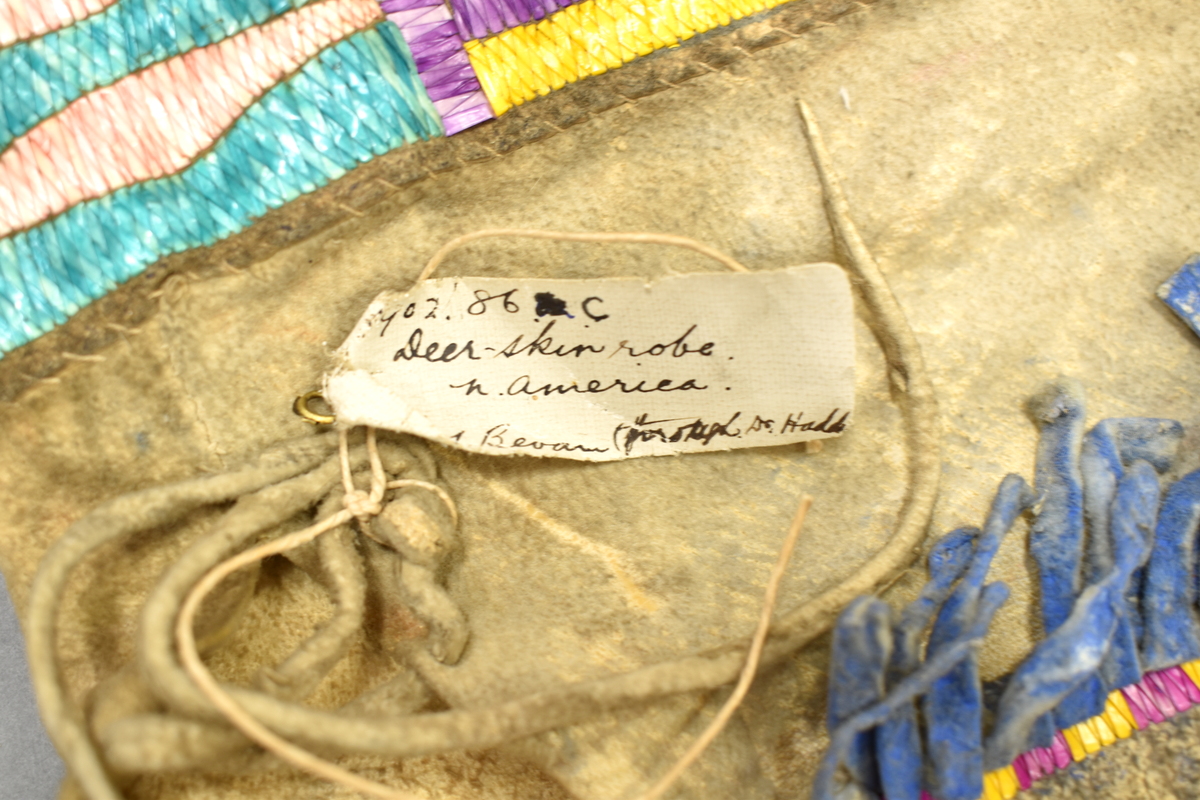 1902.86 C
Deer-skin robe.
N. America.
Bevan (through Dr. Hadd